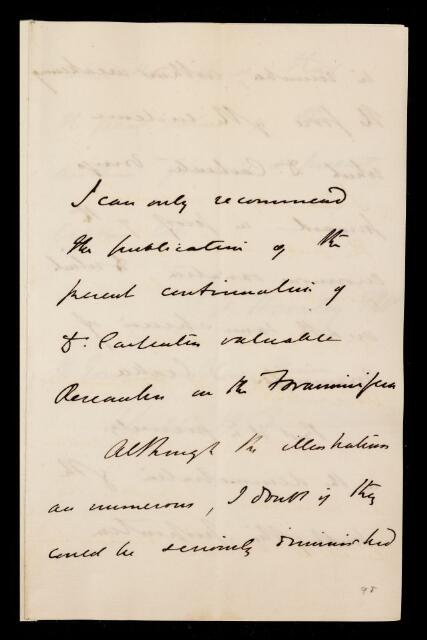 I can only recommend
the publication of the
present continuation of
Dr. Carpenter's valuable
Researches on the Foraminifera
Although the illustrations
are numerous, I doubt if they
could be seriously diminished
98